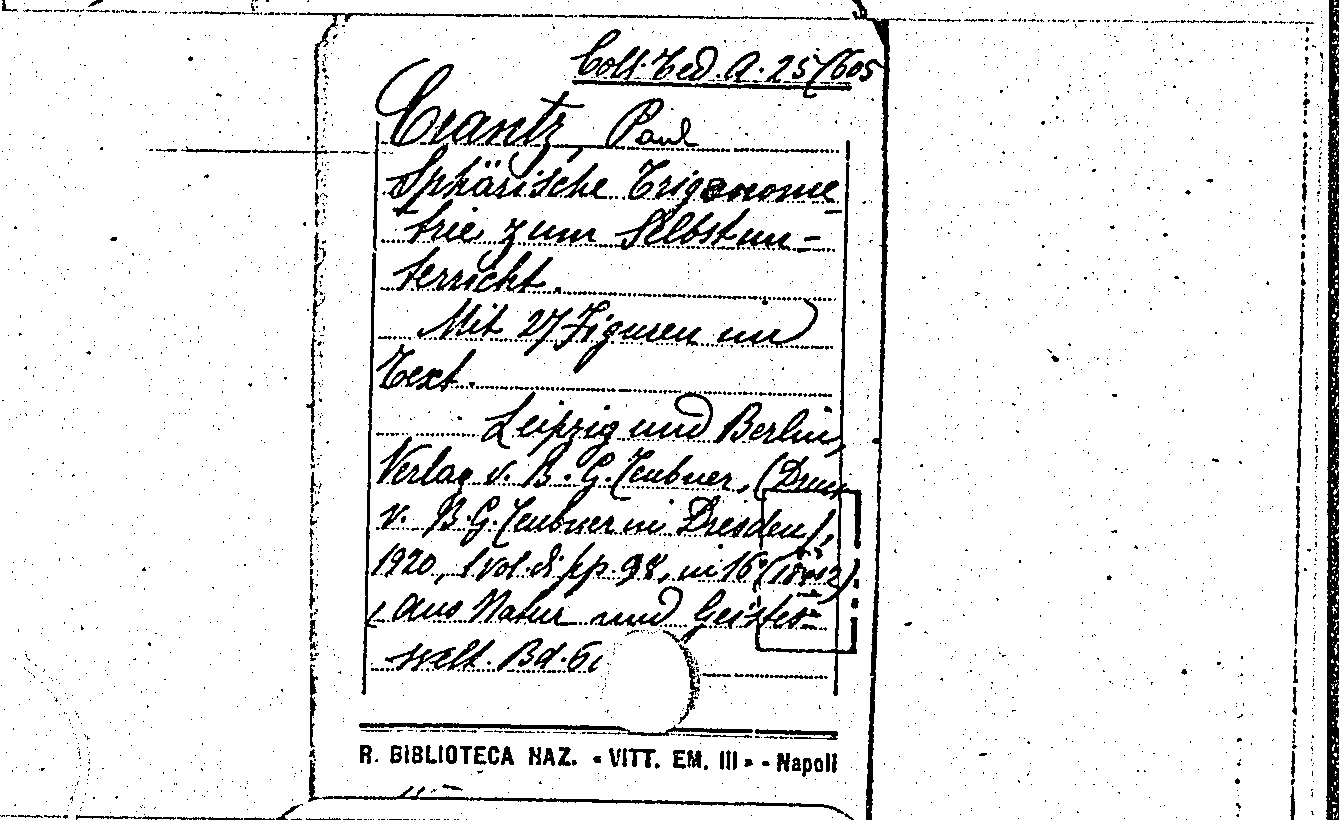 Coll. Ted. A. 25/605
Crantz, Paul
Sphärische Trigonome
trie zum Selbstun-
terricht.
Mit 27 Figuren im
Text.
Leipzig und Berlin,
Verlag v. B. G. Teubner, (Druck
v. B. G. Teubner in Dresden),
1920, 1 vol. di pp. 98, in 16°
(Aus Natur und Geistes-
welt. Bd. 6
R. BIBLIOTECA NAZ. « VITT. EM. III » - Napoli